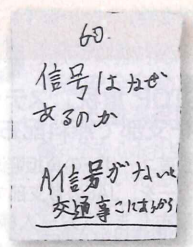 60.
信号はなぜ
あるのか
A信号がないと
交通事こにあうから